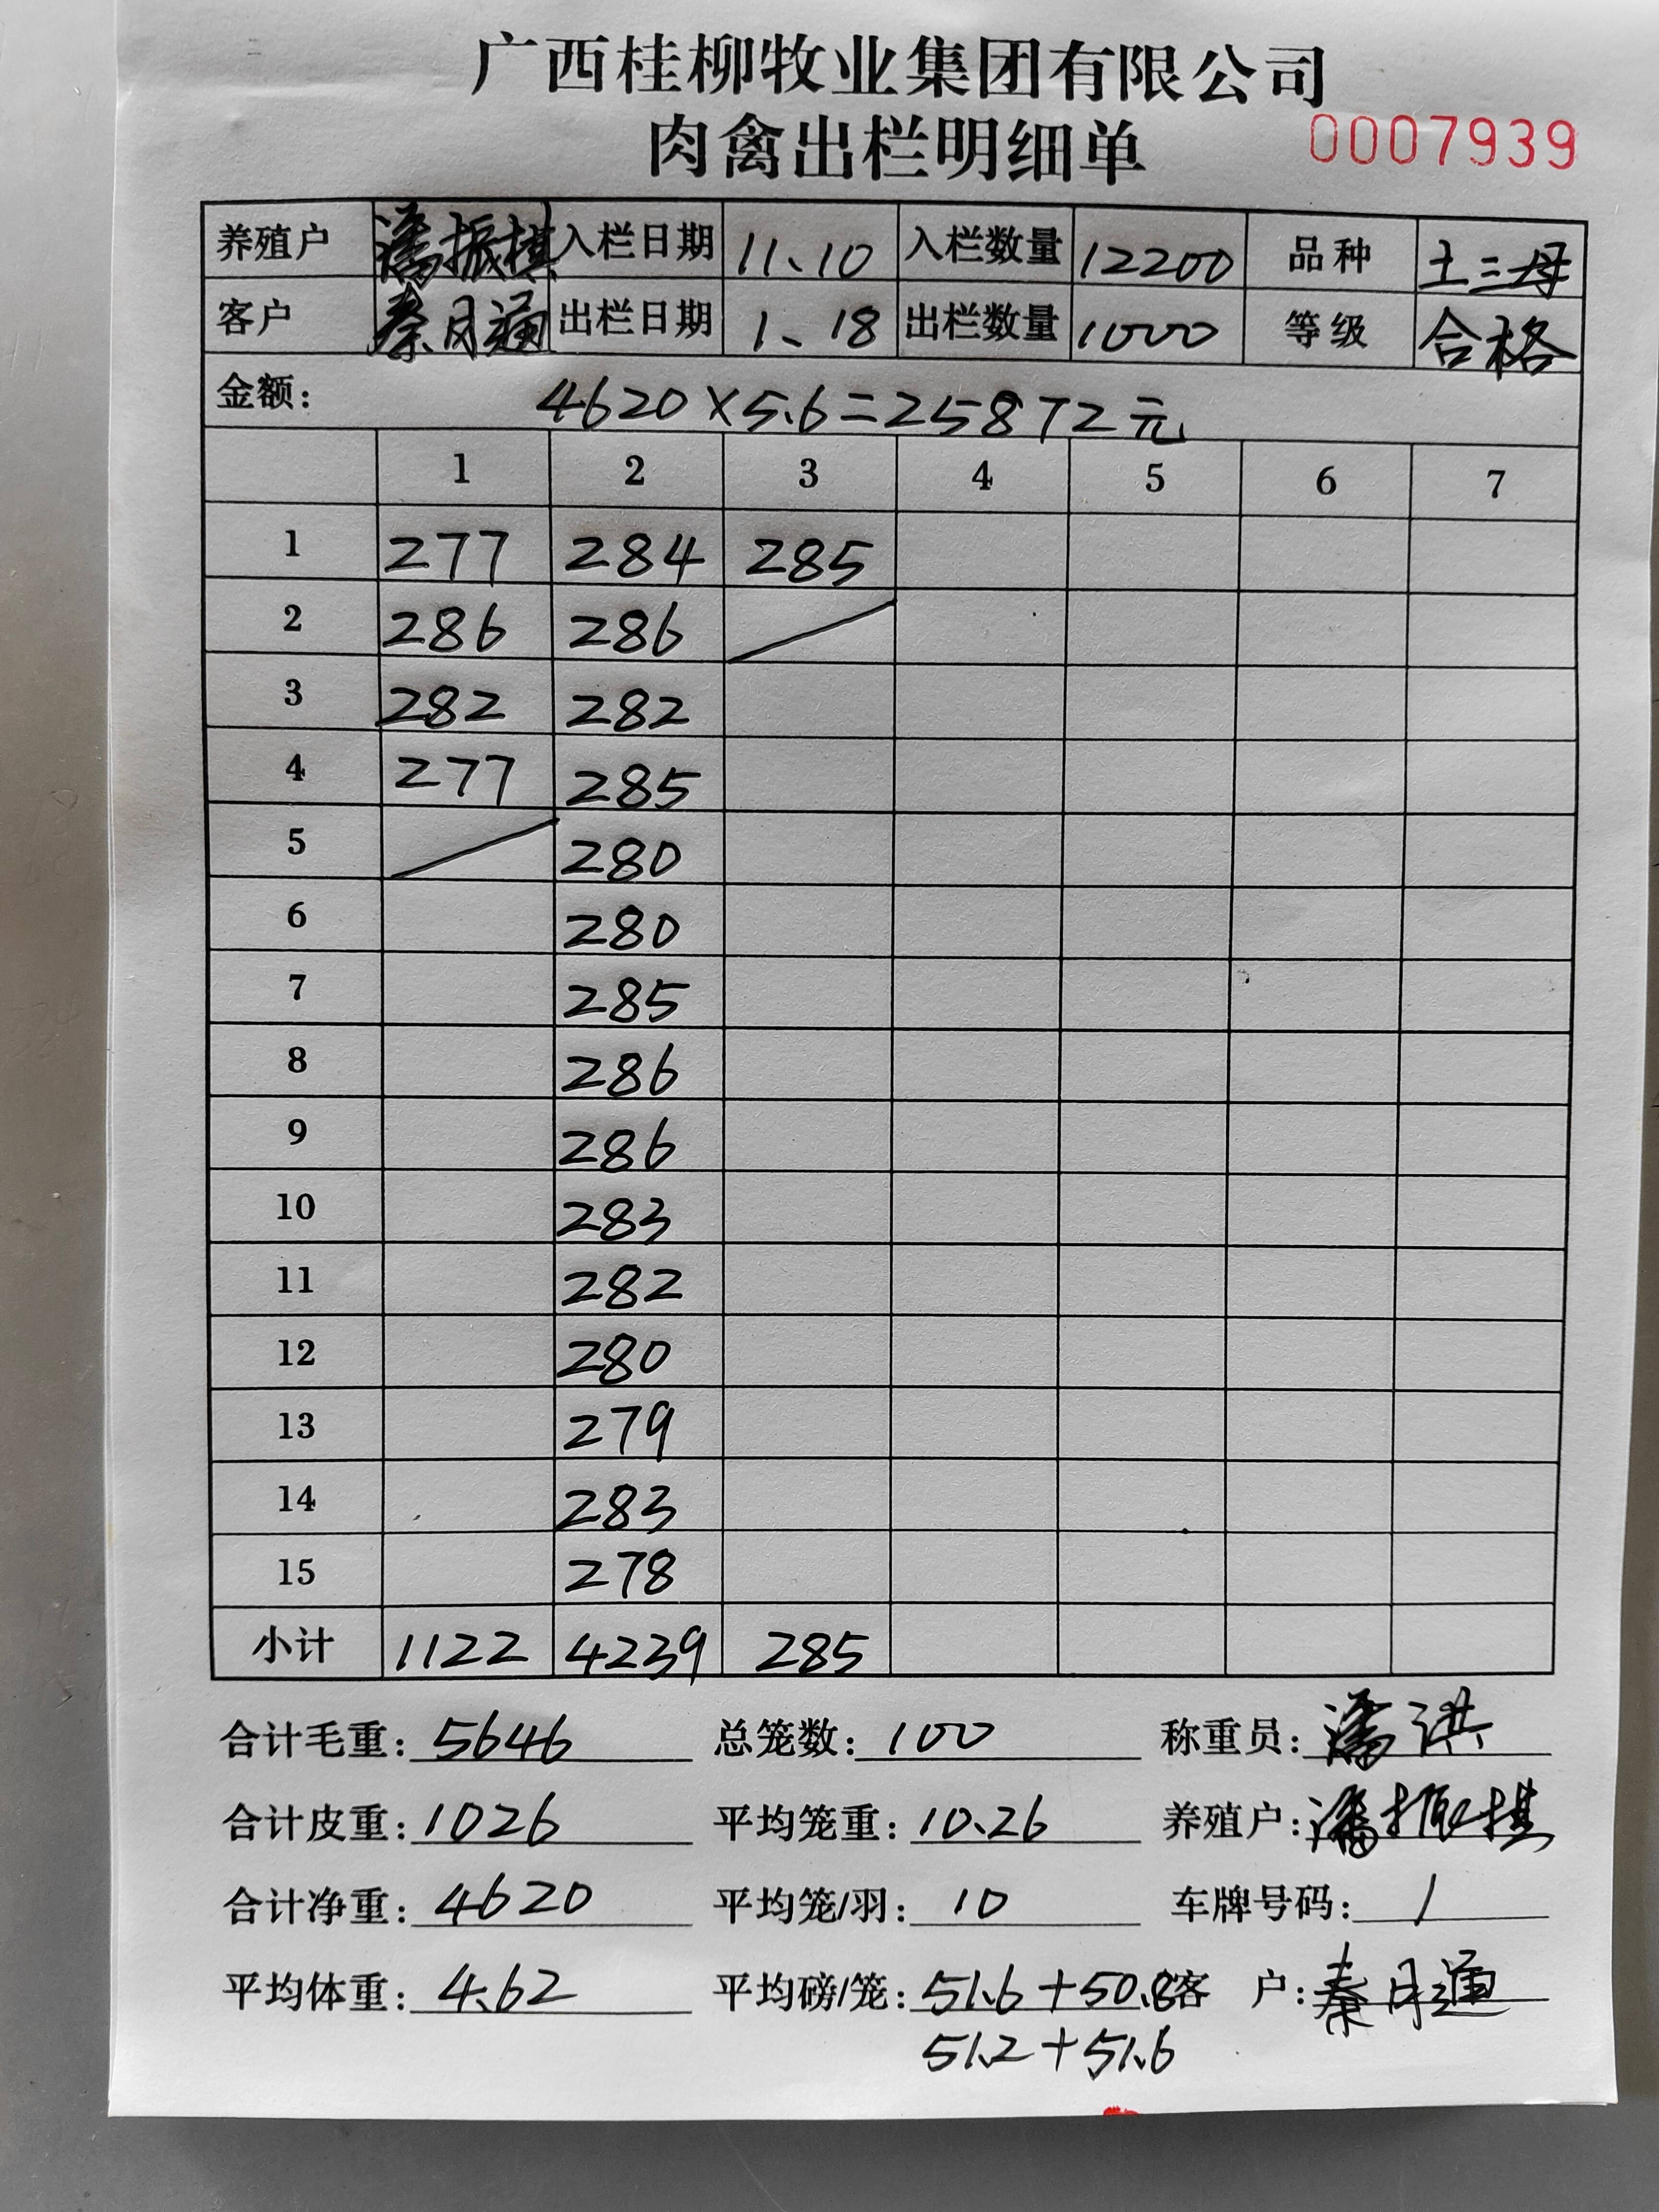 广西桂柳牧业集团有限公司
肉禽出栏明细单 0007939
养殖户 潘振棋 入栏日期 11、10 入栏数量 12200 品种 土三母
客户 秦月通 出栏日期 1、18 出栏数量 1000 等级 合格
金额： 4620×5.6=25872元
1 2 3 4 5 6 7
1 277 284 285
2 286 286
3 282 282
4 277 285
5 280
6 280
7 285
8 286
9 286
10 283
11 282
12 280
13 279
14 283
15 278
小计 1122 4239 285
合计毛重：5646 总笼数：100 称重员：潘洪
合计皮重：1026 平均笼重：10.26 养殖户：潘振棋
合计净重：4620 平均笼/羽：10 车牌号码：1
平均体重：4.62 平均磅/笼：51.6+50.8 客户：秦月通
51.2+51.6